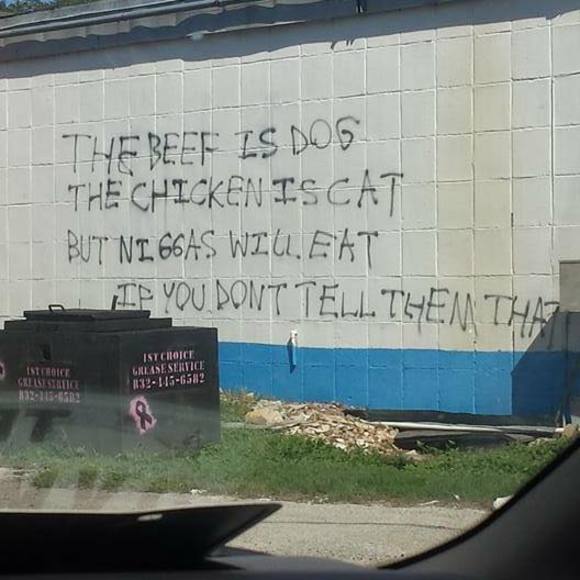 THE BEEF IS DOG
THE CHICKEN IS CAT
BUT NIGGAS WILL EAT
IF YOU DONT TELL THEM THAT
1ST CHOICE
GREASE SERVICE
832-445-6582
1ST CHOICE
GREASE SERVICE
832-445-6582